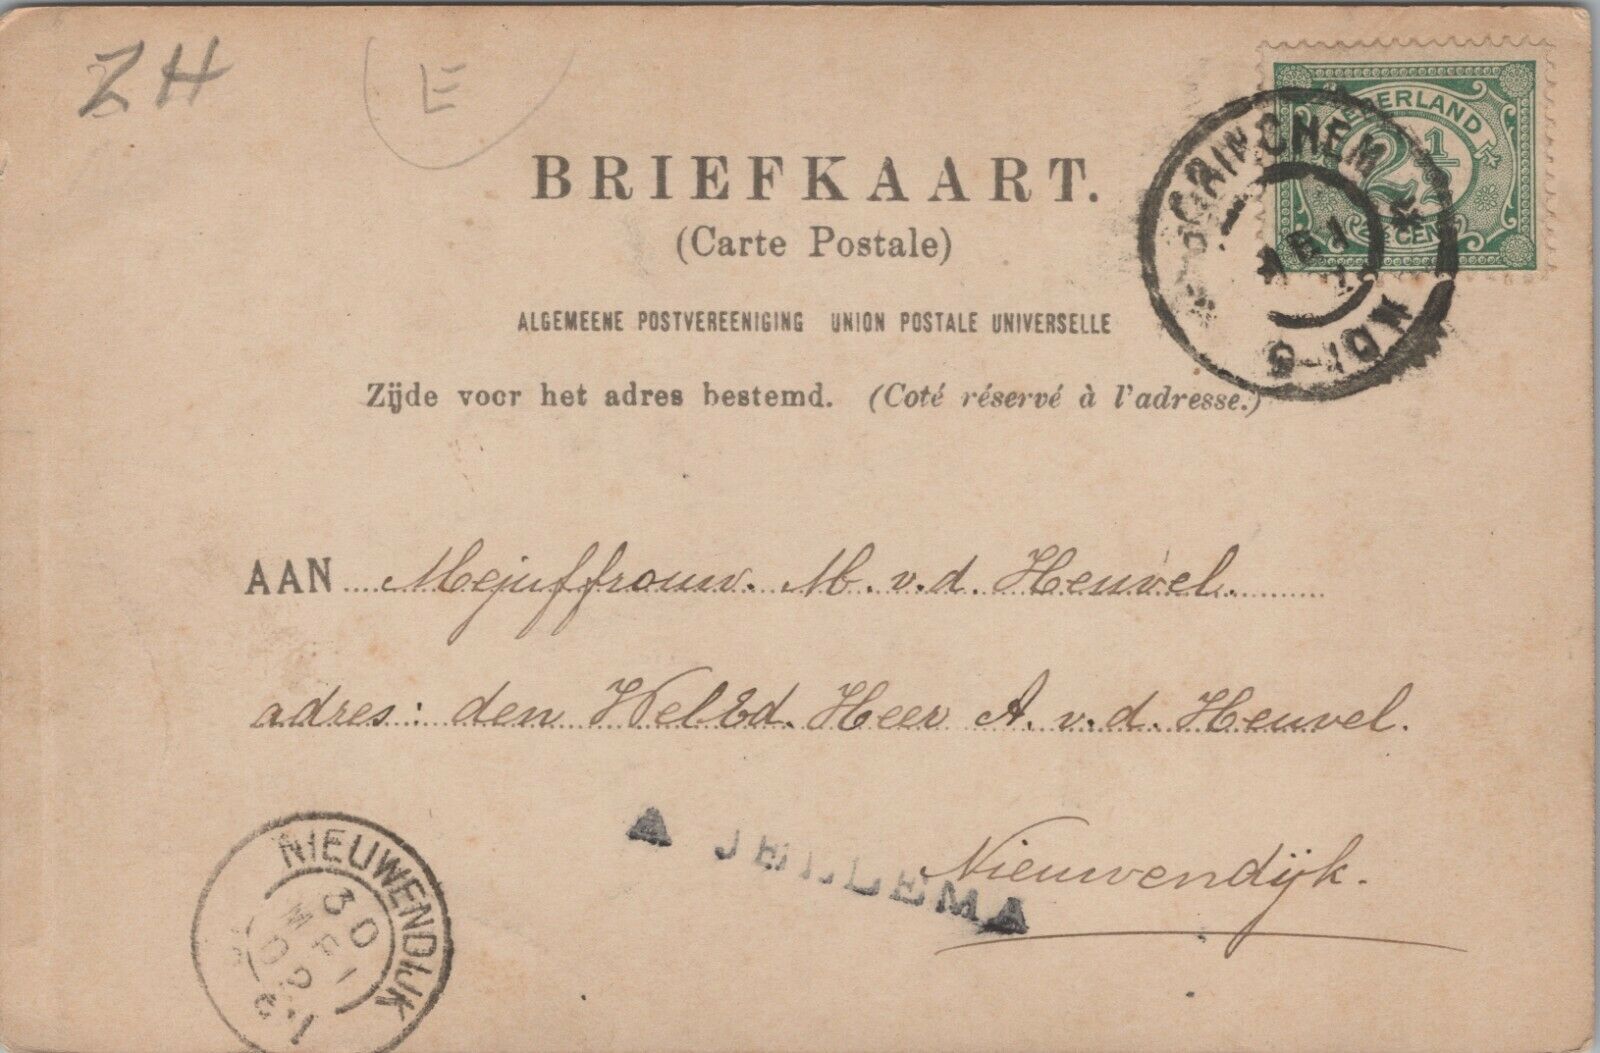 ZH
E
NEDERLAND
2½
2½ CENT
GORINCHEM
BRIEFKAART.
(Carte Postale)
ALGEMEENE POSTVEREENIGING UNION POSTALE UNIVERSELLE
Zijde voor het adres bestemd. (Coté réservé à l'adresse.)
AAN Mejuffrouw. M. v.d. Heuvel.
adres: den WelEd. Heer A. v.d. Heuvel.
A JELLEMA
Nieuwendijk.
NIEUWENDIJK
30
MEI
02